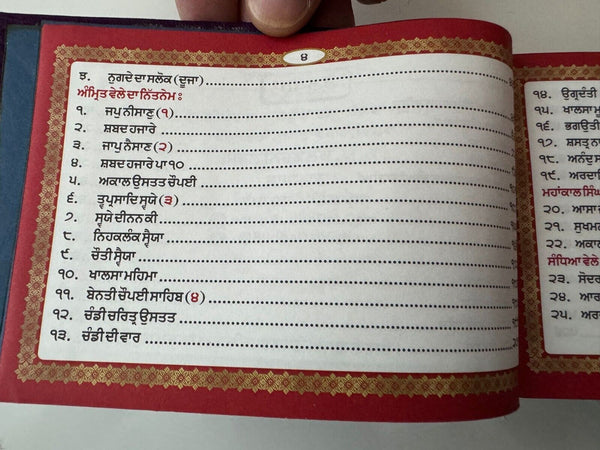 ੪
ਝ. ਨੁਗਦੇ ਦਾ ਸਲੋਕ (ਦੂਜਾ)
ਅੰਮ੍ਰਿਤ ਵੇਲੇ ਦਾ ਨਿੱਤਨੇਮ :
੧. ਜਪੁ ਨੀਸਾਣੁ (੧)
੨. ਸ਼ਬਦ ਹਜਾਰੇ
੩. ਜਾਪੁ ਨੈਸਾਣ (੨)
੪. ਸ਼ਬਦ ਹਜਾਰੇ ਪਾ ੧੦
੫. ਅਕਾਲ ਉਸਤਤ ਚੌਪਈ
੬. ਤ੍ਵਪ੍ਰਸਾਦਿ ਸ੍ਵਯੇ (੩)
੭. ਸ੍ਵਯੇ ਦੀਨਨ ਕੀ
੮. ਨਿਹਕਲੰਕ ਸ੍ਵੈਯਾ
੯. ਚੌਤੀ ਸ੍ਵੈਯਾ
੧੦. ਖਾਲਸਾ ਮਹਿਮਾ
੧੧. ਬੇਨਤੀ ਚੌਪਈ ਸਾਹਿਬ (੪)
੧੨. ਚੰਡੀ ਚਰਿਤ੍ਰ ਉਸਤਤ
੧੩. ਚੰਡੀ ਦੀ ਵਾਰ
੧੪. ਉਗ੍ਰਦੰਤੀ
੧੫. ਖਾਲਸਾ
੧੬. ਭਗਉਤੀ
੧੭. ਸ਼ਸਤ੍ਰ
੧੮.
੧੯.
ਮਹਾਂਕਾਲ ਸਿੰਘ
੨੦. ਆਸਾ
੨੧.
੨੨.
ਸੰਧਿਆ ਵੇਲੇ
੨੩.
੨੪.
੨੫.